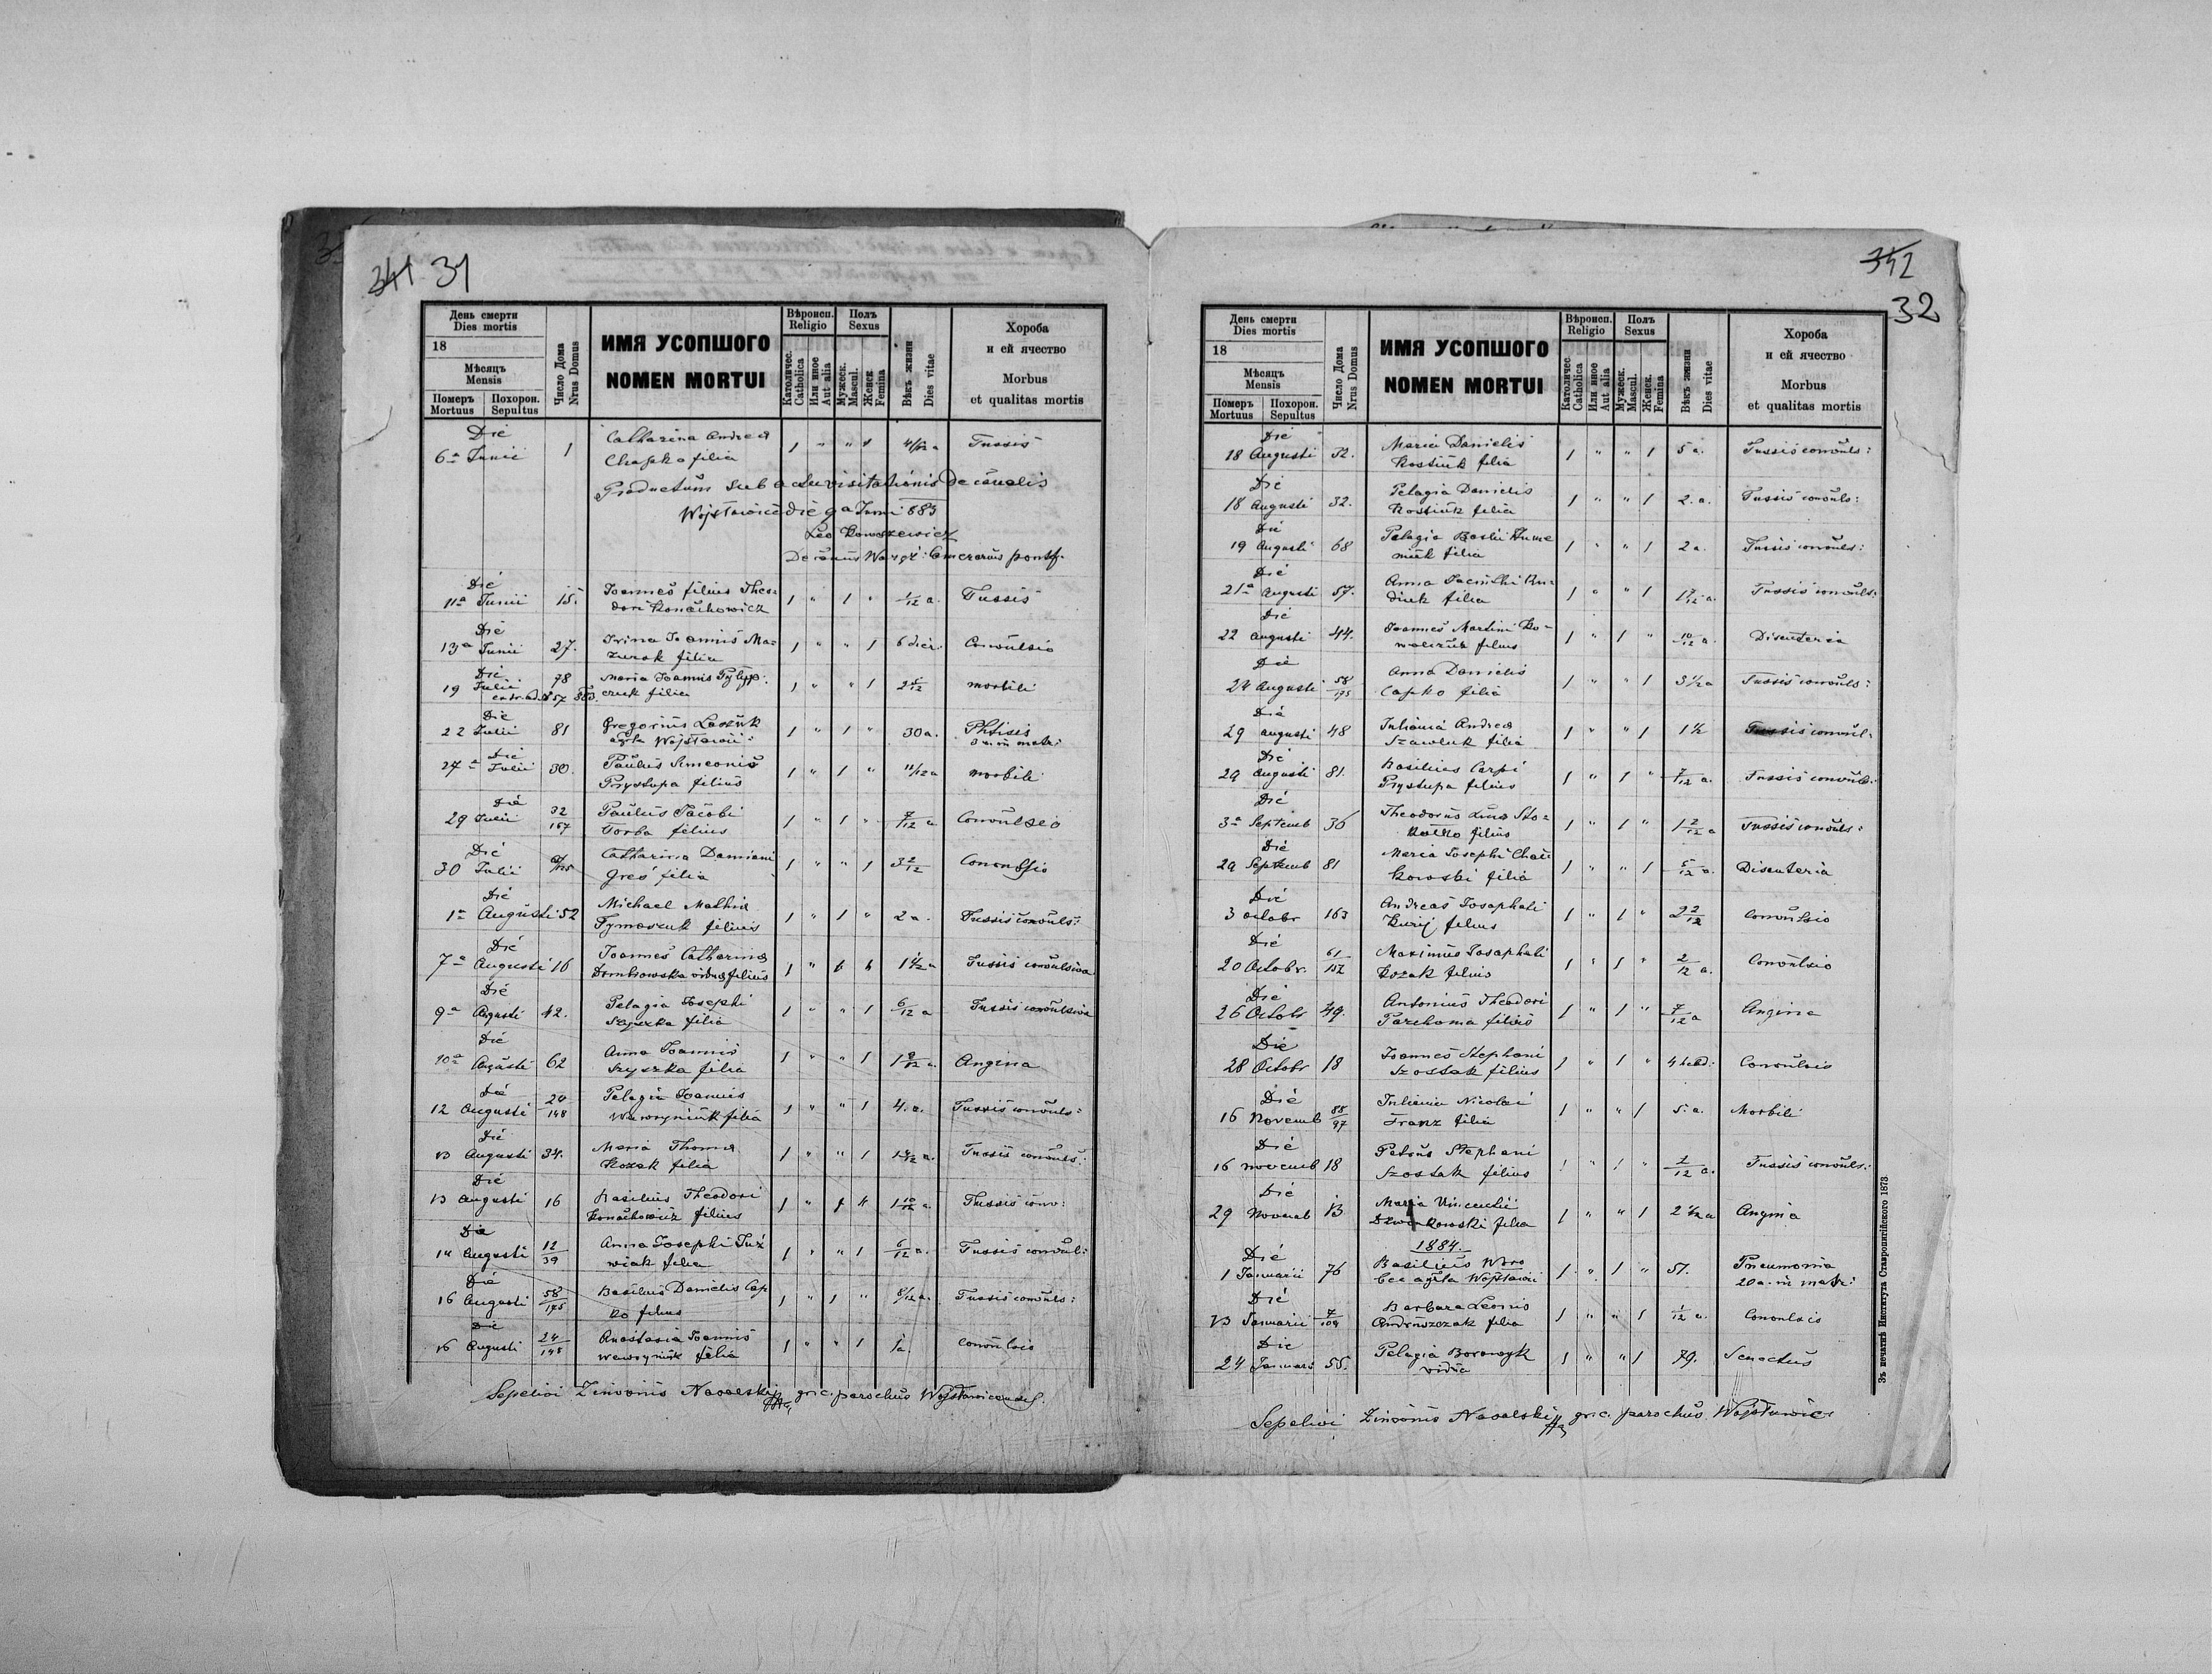 341 31
День смерти
Dies mortis
18
Мѣсяцъ
Mensis
Померъ
Mortuus
Похорон.
Sepultus
Число Дома
Nrus Domus
ИМЯ УСОПШОГО
NOMEN MORTUI
Вѣроисп.
Religio
Католичес.
Catholica
Или иное
Aut alia
Полъ
Sexus
Мужеск.
Mascul.
Женск
Femina
Вѣкъ жизни
Dies vitae
Хороба
и ей ячество
Morbus
et qualitas mortis
Die
6a Junii 1 Catharina Andreae 1 " " 1 Tussis
filia
Productum sub actu visitationis decanalis
Wojsławice die 9a Junii 883
Leo
Decanus
Die
11a Junii 15. Joannes filius Theo- 1 " 1 " 1/12 a. Tussis
dori Konachowicz
Die
13a Junii 27. Irina Joannis Ma- 1 " " 1 6 dier. Convulsio
zurok filia
Die
19 Julii 78 Maria Joannis Pylyp- 1 " " 1 morbili
czuk filia
Die
22 Julii 81 Gregorius 1 " 1 " 30 a. Phtisis
agrla Wojsławii
Die
27a Julii 30. Paulus Simeonis 1 " 1 " 11/12 a morbili
Prystupa filius
Die
29 Julii 32/167 Paulus Jacobi 1 " 1 " 7/12 a Convulsio
Torba filius
Die
30 Julii Catharina Damiani 1 " " 1 3 2/12 Convulsio
Greś filia
Die
1a Augusti 52 Michael Mathiae 1 " 1 " 2 a. Tussis convuls:
Tymoszuk filius
Die
7a Augusti 16 Joannes Catharinae 1 " Tussis convulsiva
Dombrowska viduae filius
Die
9a Augusti 42. Pelagia Josephi 1 " " 1 6/12 a Tussis convulsiva
Szyszka filia
Die
10a Augusti 62 Anna Joannis 1 " " 1 Angina
Szyszka filia
Die
12 Augusti Pelagia Joannis 1 " " 1 4. a. Tussis convuls:
Wawryniuk filia
Die
13 Augusti 34. Maria Thomae 1 " " 1 Tussis convuls:
Kozak filia
Die
13 Augusti 16 Basilius Theodori 1 " 1 10/12 a. Tussis conv:
Konachowicz filius
Die
14 Augusti 12/39 Anna Josephi Juź- 1 " " 1 6/12 a. Tussis convul:
wiak filia
Die
16 Augusti 58/175 Basilius Danielis Cap- 1 " 1 " Tussis convuls:
ko filius
Die
16 Augusti Anastasia Joannis 1 " " 1 1 a. Convulsio
Wawryniuk filia
Sepelivi Zinovius Navalskij gr. c. parochus
342
32
День смерти
Dies mortis
18
Мѣсяцъ
Mensis
Померъ
Mortuus
Похорон.
Sepultus
Число Дома
Nrus Domus
ИМЯ УСОПШОГО
NOMEN MORTUI
Вѣроисп.
Religio
Католичес.
Catholica
Или иное
Aut alia
Полъ
Sexus
Мужеск.
Mascul.
Женск.
Femina
Вѣкъ жизни
Dies vitae
Хороба
и ей ячество
Morbus
et qualitas mortis
Die
18 Augusti 32. Maria Danielis 1 " " 1 5 a. Tussis convuls:
Kostiuk filia
Die
18 Augusti 32. Pelagia Danielis 1 " " 1 2. a. Tussis convuls:
Kostiuk filia
Die
19 Augusti 68 Pelagia Basilii Hume- 1 " " 1 2 a. Tussis convuls:
niuk filia
Die
21a Augusti 57. Anna 1 " " 1 Tussis convuls:
filia
Die
22 Augusti 44. Joannes Martini Ko- 1 " 1 " 10/12 a. Disenteria
walczuk filius
Die
24 Augusti 58/175 Anna Danielis 1 " " 1 3 1/2 a Tussis convuls:
Capko filia
Die
29 Augusti 48 Juliana Andreae 1 " " 1 1 1/2 Tussis convul:
Szawluk filia
Die
29 Augusti 81. Basilius Carpi 1 " 1 " 7/12 a. Tussis convuls:
Prystupa filius
Die
3a Septemb 36 Theodorus Lucae Sto- 1 " 1 " 1 2/12 a Tussis convuls:
filius
Die
29 Septemb 81 Maria Josephi 1 " " 1 5/12 a. Disenteria
filia
Die
3 Octobr 163 Andreas Josaphati 1 " 1 " 2 2/12 Convulsio
Kurij filius
Die
20 Octobr. 61/157 Maximus Josaphati 1 " 1 " 2/12 a. Convulsio
Kozak filius
Die
26 Octobr 49. Antonius Theodori 1 " 1 " 7/12 a Angina
Parchoma filius
Die
28 Octobr 18 Joannes Stephani 1 " 1 " 4 hebd: Convulsio
Szostak filius
Die
16 Novemb 85/97 Juliana Nicolai 1 " " 1 5. a. Morbili
Franz filia
Die
16 Novemb 18 Petrus Stephani 1 " 1 " 1/12 a. Tussis convuls:
Szostak filius
Die
29 Novemb 13 Maria Vincentii 1 " " 1 2 1/2 a Angina
filia
1884.
Die
1 Januarii 76 Basilius 1 " 1 " 51. Pneumonia
agrla Wojsławii 20 a. in matr:
Die
13 Januarii 7/109 Barbara Leonis 1 " " 1 1/12 a. Convulsio
Andruszczak filia
Die
24 Januarii 55. Pelagia Borowyk 1 " " 1 79. Senectus
vidua
Sepelivi Zinovius Navalskij gr. c. parochus Wojsławic
Зъ печатнѣ Института Ставропигійского 1873.